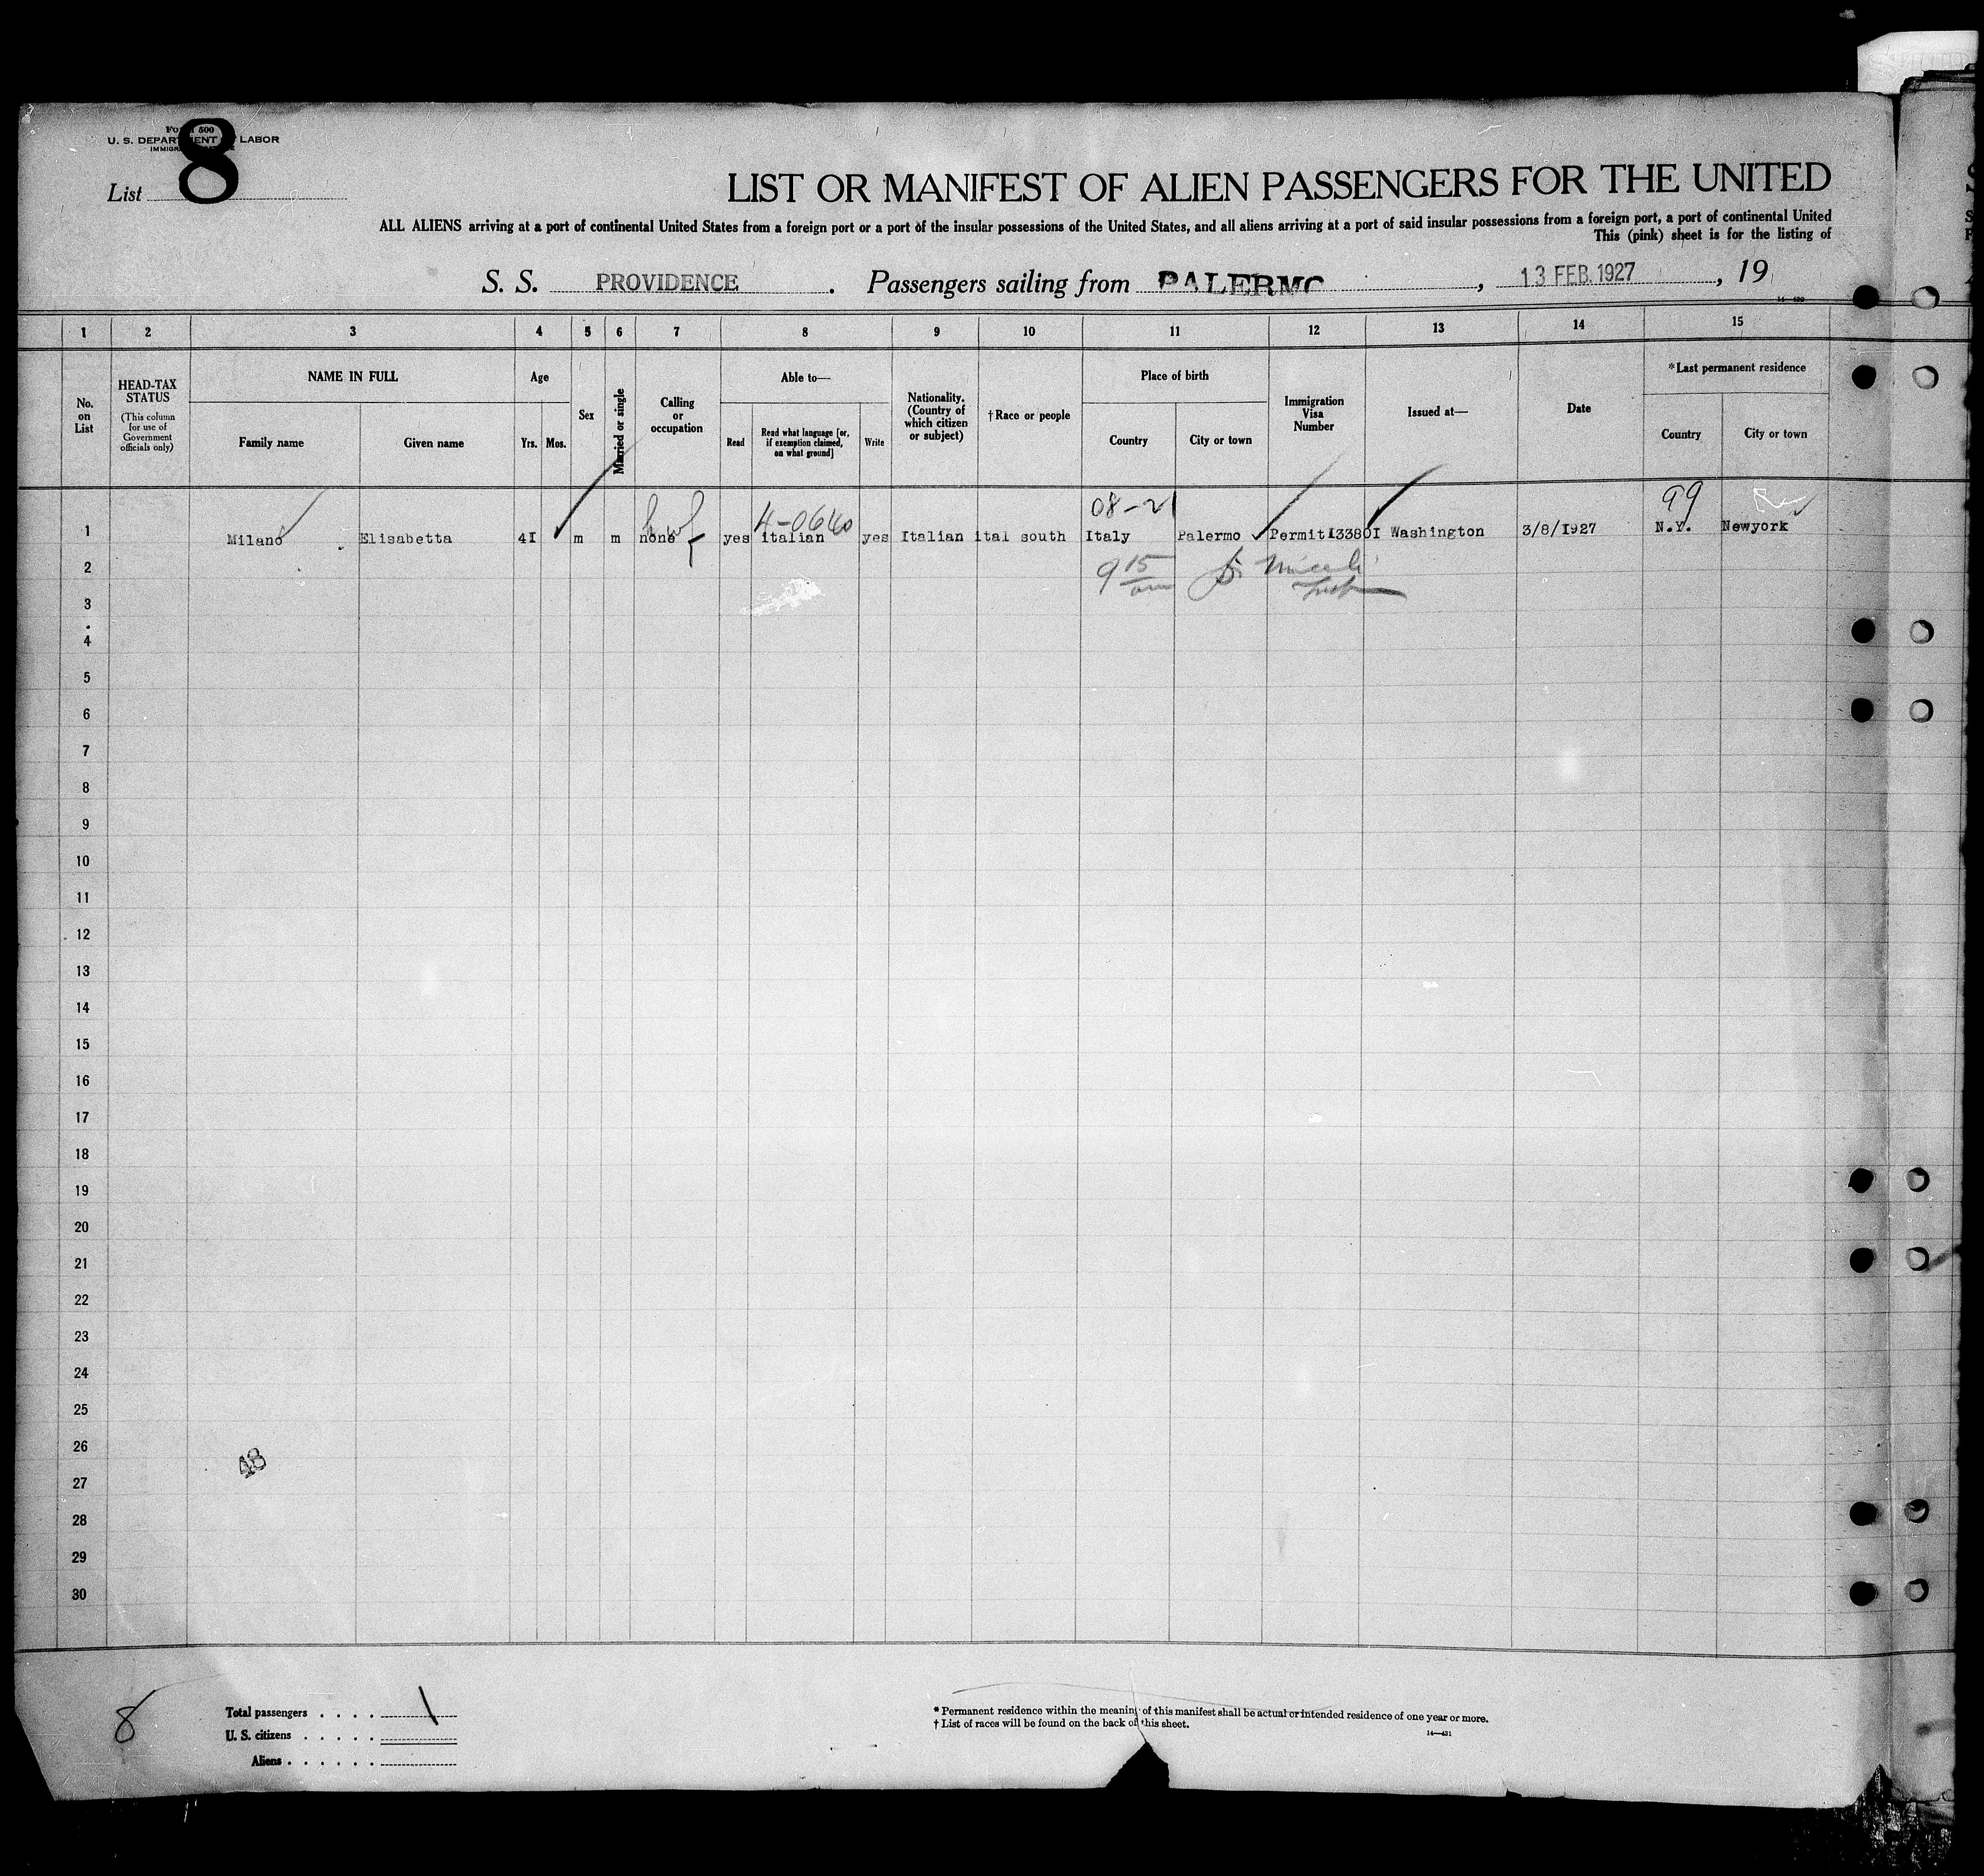 Form 500
U. S. DEPARTMENT OF LABOR
List 8
LIST OR MANIFEST OF ALIEN PASSENGERS FOR THE UNITED
ALL ALIENS arriving at a port of continental United States from a foreign port or a port of the insular possessions of the United States, and all aliens arriving at a port of said insular possessions from a foreign port, a port of continental United
This (pink) sheet is for the listing of
S. S. PROVIDENCE . Passengers sailing from PALERMO , 13 FEB. 1927 , 19
1 2 3 4 5 6 7 8 9 10 11 12 13 14 15
No. on List
HEAD-TAX STATUS (This column for use of Government officials only)
NAME IN FULL
Family name Given name
Age
Yrs. Mos.
Sex
Married or single
Calling or occupation
Able to—
Read
Read what language [or, if exemption claimed, on what ground]
Write
Nationality. (Country of which citizen or subject)
†Race or people
Place of birth
Country City or town
Immigration Visa Number
Issued at—
Date
*Last permanent residence
Country City or town
4-0640 08-21 99
1 Milano Elisabetta 4I m m none yes italian yes Italian ital south Italy Palermo Permit I3380I Washington 3/8/I927 N.Y. Newyork
2 9 15 am
3
4
5
6
7
8
9
10
11
12
13
14
15
16
17
18
19
20
21
22
23
24
25
26
48
27
28
29
30
8
Total passengers . . . . 1
U. S. citizens . . . . .
Aliens . . . . . .
* Permanent residence within the meaning of this manifest shall be actual or intended residence of one year or more.
† List of races will be found on the back of this sheet.
14—431